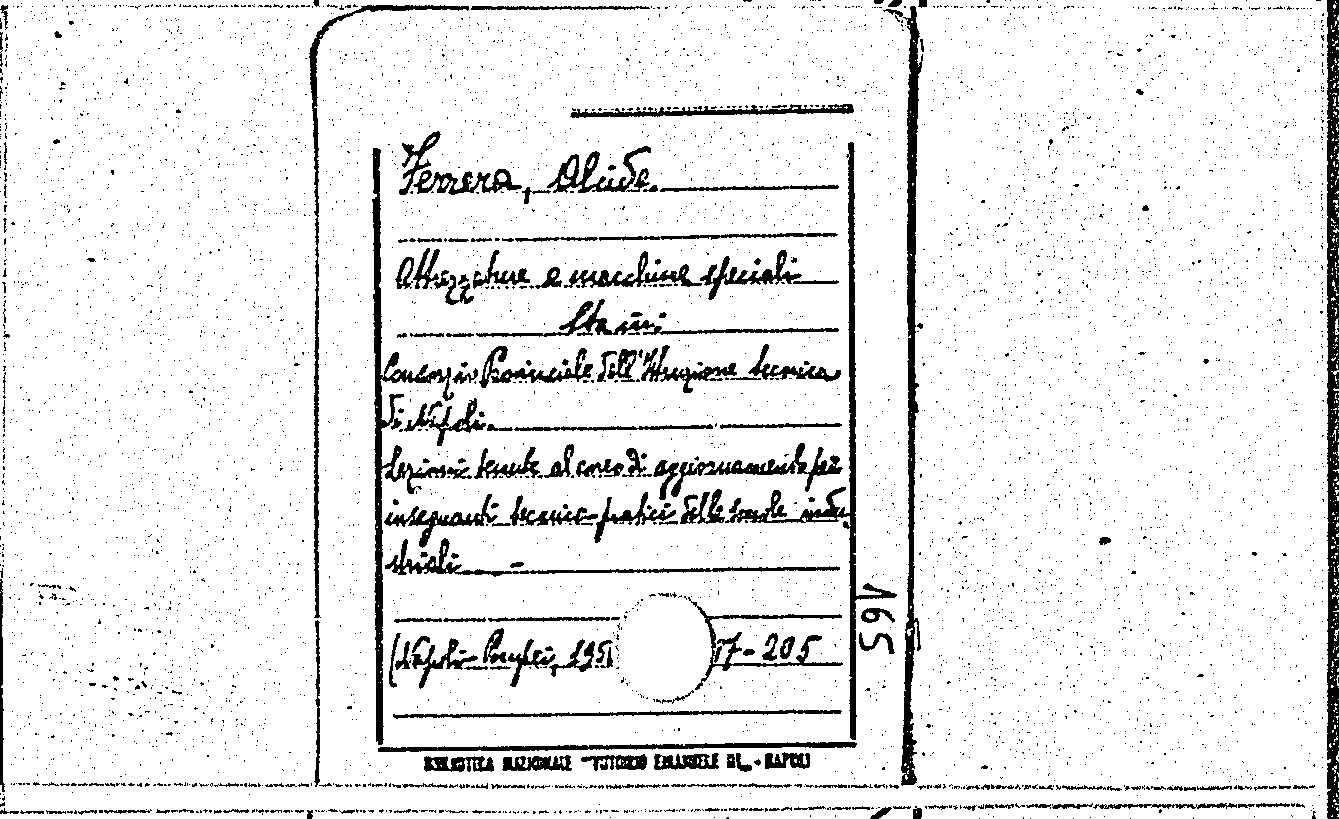 Ferrera, Alcide.
Attrezzature e macchine speciali
Consorzio Provinciale dell'Istruzione tecnica
di Napoli.
Lezioni tenute al corso di aggiornamento per
insegnanti tecnico-pratici delle scuole indu-
striali -
(Napoli- Pompei, 195 17-205
165
BIBLIOTECA NAZIONALE "VITTORIO EMANUELE III" - NAPOLI